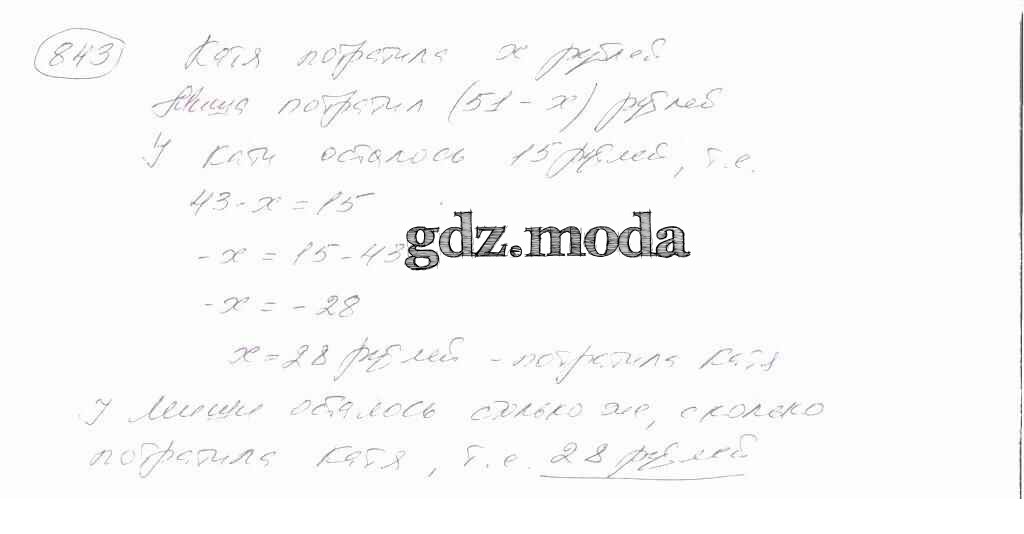 843 Катя потратила x рублей
Миша потратил (51 - x) рублей
У Кати осталось 15 рублей, т.е.
43 - x = 15
gdz.moda
-x = 15 - 43
-x = -28
x = 28 рублей - потратила Катя
У Миши осталось столько же, сколько
потратила Катя, т.е. 28 рублей